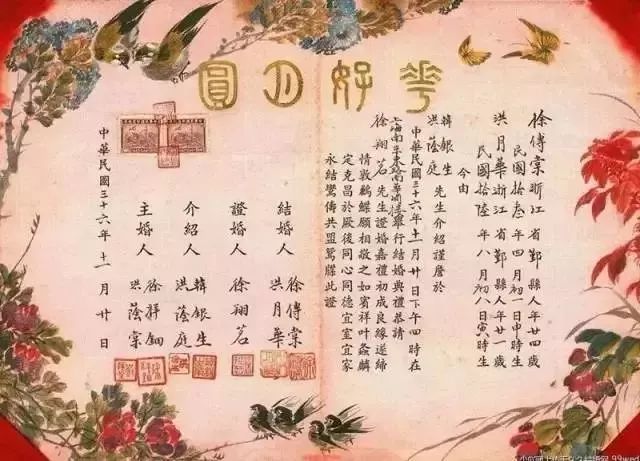 華好月圓
徐傳棠浙江省鄞縣人年廿四歲
民國拾叁年四月初一日申時生
洪月華浙江省鄞縣人年廿一歲
民國拾陸年八月初八日寅時生
今由
韓銀生
洪蔭庭
先生介紹謹詹於
中華民國三十六年十一月廿日下午四時在
上海南京東路南華酒樓舉行結婚典禮恭請
徐翔茗先生證婚嘉禮初成良緣遂締
情敦鶼鰈願相敬之如賓祥叶螽麟
定克昌於厥後同心同德宜室宜家
永結鸞儔共盟鴛牒此證
結婚人
徐傳棠
洪月華
證婚人
徐翔茗
介紹人
韓銀生
洪蔭庭
主婚人
徐祥鈿
洪蔭棠
中華民國三十六年十一月廿日